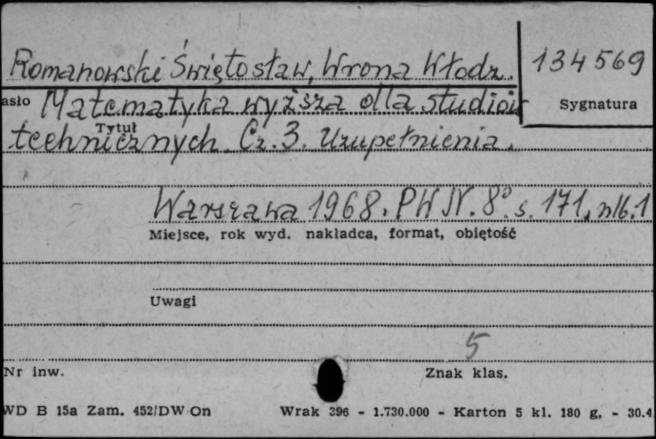 Romanowski Świętosław, Wrona Włodz.
134569
asło Matematyka wyższa dla studiów
Sygnatura
Tytuł
technicznych. Cz. 3. Uzupełnienia.
Warszawa 1968. PWN. 8° s. 171, nlb. 1
Miejsce, rok wyd. nakładca, format, objętość
Uwagi
5
Nr inw.
Znak klas.
WD B 15a Zam. 452/DW On
Wrak 396 - 1.730.000 - Karton 5 kl. 180 g. - 30.4